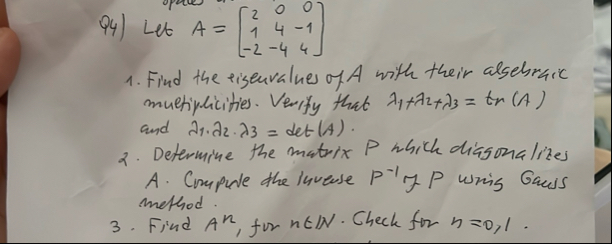 Q4) Let A = [2 0 0
1 4 -1
-2 -4 4]
1. Find the eigenvalues of A with their algebraic
multiplicities. Verify that λ1+λ2+λ3 = tr(A)
and λ1.λ2.λ3 = det(A).
2. Determine the matrix P which diagonalizes
A. Compute the inverse P⁻¹ of P using Gauss
method.
3. Find Aⁿ, for n∈ℕ. Check for n=0,1.